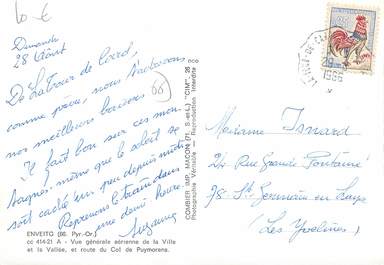 10 €
Dimanche
28 Août
De La Tour de Carol,
comme prévu, nous t'adressons
nos meilleurs baisers
66
Il fait bon sur ces mon-
tagnes même que le soleil se
soit caché un peu depuis midi.
Reprenons le train dans
une demi-heure.
Suzanne
ENVEITG (66. Pyr.-Or.)
cc 414-21 A - Vue générale aérienne de la Ville
et la Vallée, et route du Col de Puymorens.
COMBIER IMP. MACON (71. S.-et-L.) "CIM", 26
Photographie Véritable - Reproduction Interdite
1966
Madame Isnard
24 Rue Grande Fontaine
78 - St Germain en Laye
(Les Yvelines)